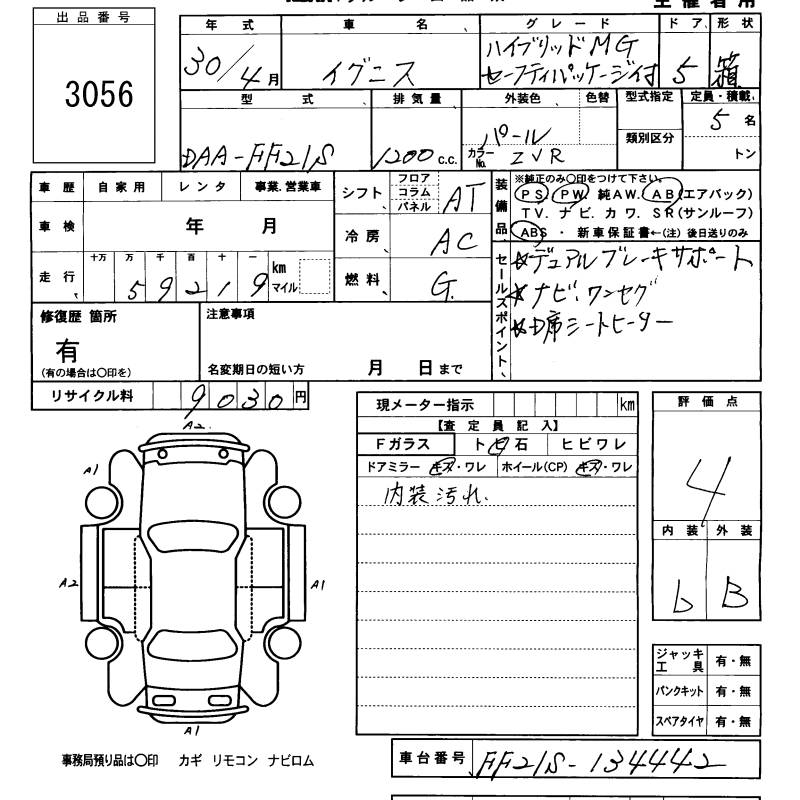 主催者用
出品番号
3056
年式
30/4月
車名
イグニス
グレード
ハイブリッドMG
セーフティパッケージ付
ドア
5
形状
箱
型式
DAA-FF21S
排気量
1200c.c.
外装色
パール
色替
カラーNo.
ZVR
型式指定
類別区分
定員・積載
5名
トン
車歴 自家用 レンタ 事業.営業車
車検 年 月
走行 十万 万 千 百 十 一
59219 km マイル
シフト フロア コラム パネル AT
冷房 AC
燃料 G.
装備品
※純正のみ〇印をつけて下さい。
PS PW. 純AW. AB(エアバック)
TV. ナビ. カワ. SR(サンルーフ)
ABS ・ 新車保証書←(注) 後日送りのみ
セールスポイント
☆デュアルブレーキサポート
☆ナビ、ワンセグ
☆D席シートヒーター
修復歴 箇所
有
(有の場合は〇印を)
注意事項
名変期日の短い方 月 日まで
リサイクル料 9030円
現メーター指示 km
【査定員記入】
Fガラス トビ石 ヒビワレ
ドアミラー キズ・ワレ ホイール(CP) キズ・ワレ
内装汚れ.
評価点
4
内装 外装
b B
A2
A1
A2
A1
A1
ジャッキ工具 有・無
パンクキット 有・無
スペアタイヤ 有・無
事務局預り品は〇印 カギ リモコン ナビロム
車台番号 FF21S-134442